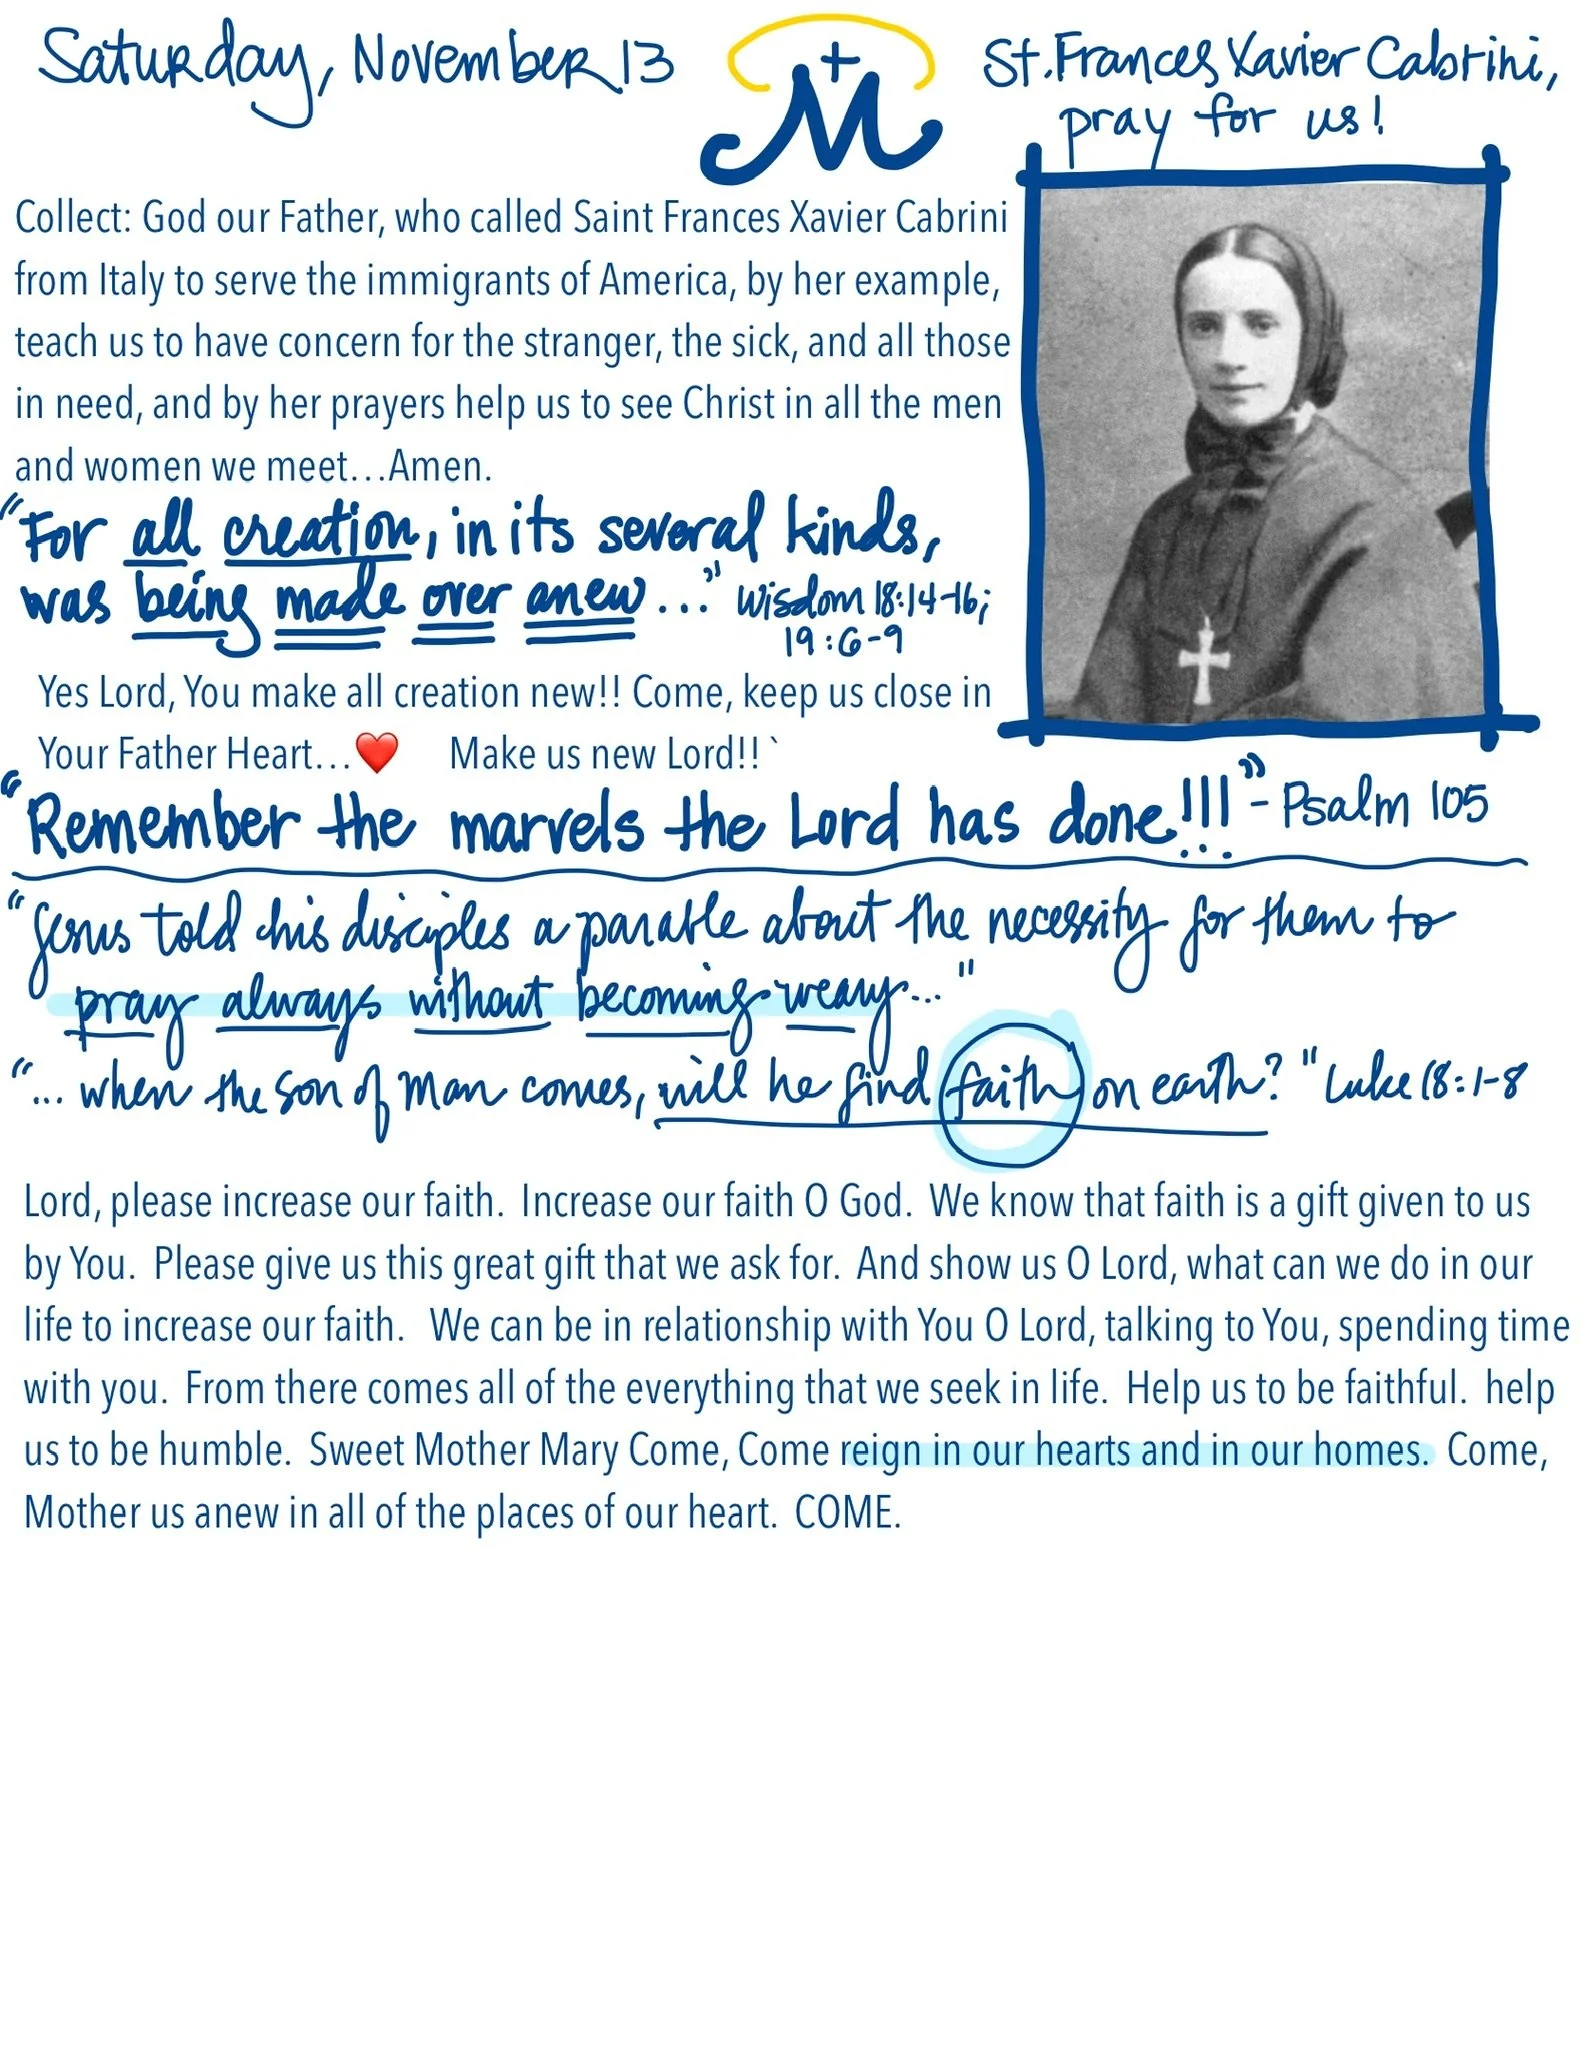 Saturday, November 13
M
St. Frances Xavier Cabrini,
pray for us!
Collect: God our Father, who called Saint Frances Xavier Cabrini
from Italy to serve the immigrants of America, by her example,
teach us to have concern for the stranger, the sick, and all those
in need, and by her prayers help us to see Christ in all the men
and women we meet...Amen.
"For all creation, in its several kinds,
was being made over anew..." Wisdom 18:14-16;
19:6-9
Yes Lord, You make all creation new!! Come, keep us close in
Your Father Heart...❤️ Make us new Lord!! `
"Remember the marvels the Lord has done!!!" - Psalm 105
"Jesus told his disciples a parable about the necessity for them to
pray always without becoming weary..."
"... when the Son of Man comes, will he find faith on earth?" Luke 18:1-8
Lord, please increase our faith. Increase our faith O God. We know that faith is a gift given to us
by You. Please give us this great gift that we ask for. And show us O Lord, what can we do in our
life to increase our faith. We can be in relationship with You O Lord, talking to You, spending time
with you. From there comes all of the everything that we seek in life. Help us to be faithful. help
us to be humble. Sweet Mother Mary Come, Come reign in our hearts and in our homes. Come,
Mother us anew in all of the places of our heart. COME.